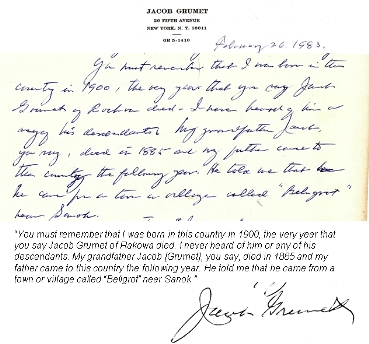 JACOB GRUMET
30 FIFTH AVENUE
NEW YORK, N. Y. 10011
GR 5-1410
February 26, 1983.
You must remember that I was born in this
country in 1900, the very year that you say Jacob
Grumet of Rakowa died. I never heard of him or
any of his descendants. My grandfather Jacob,
you say, died in 1885 and my father came to
this country the following year. He told me that
he came from a town or village called "Beligrot"
near Sanok.
"You must remember that I was born in this country in 1900, the very year that
you say Jacob Grumet of Rakowa died. I never heard of him or any of his
descendants. My grandfather Jacob (Grumet), you say, died in 1885 and my
father came to this country the following year. He told me that he came from a
town or village called "Beligrot" near Sanok."
Jacob Grumet